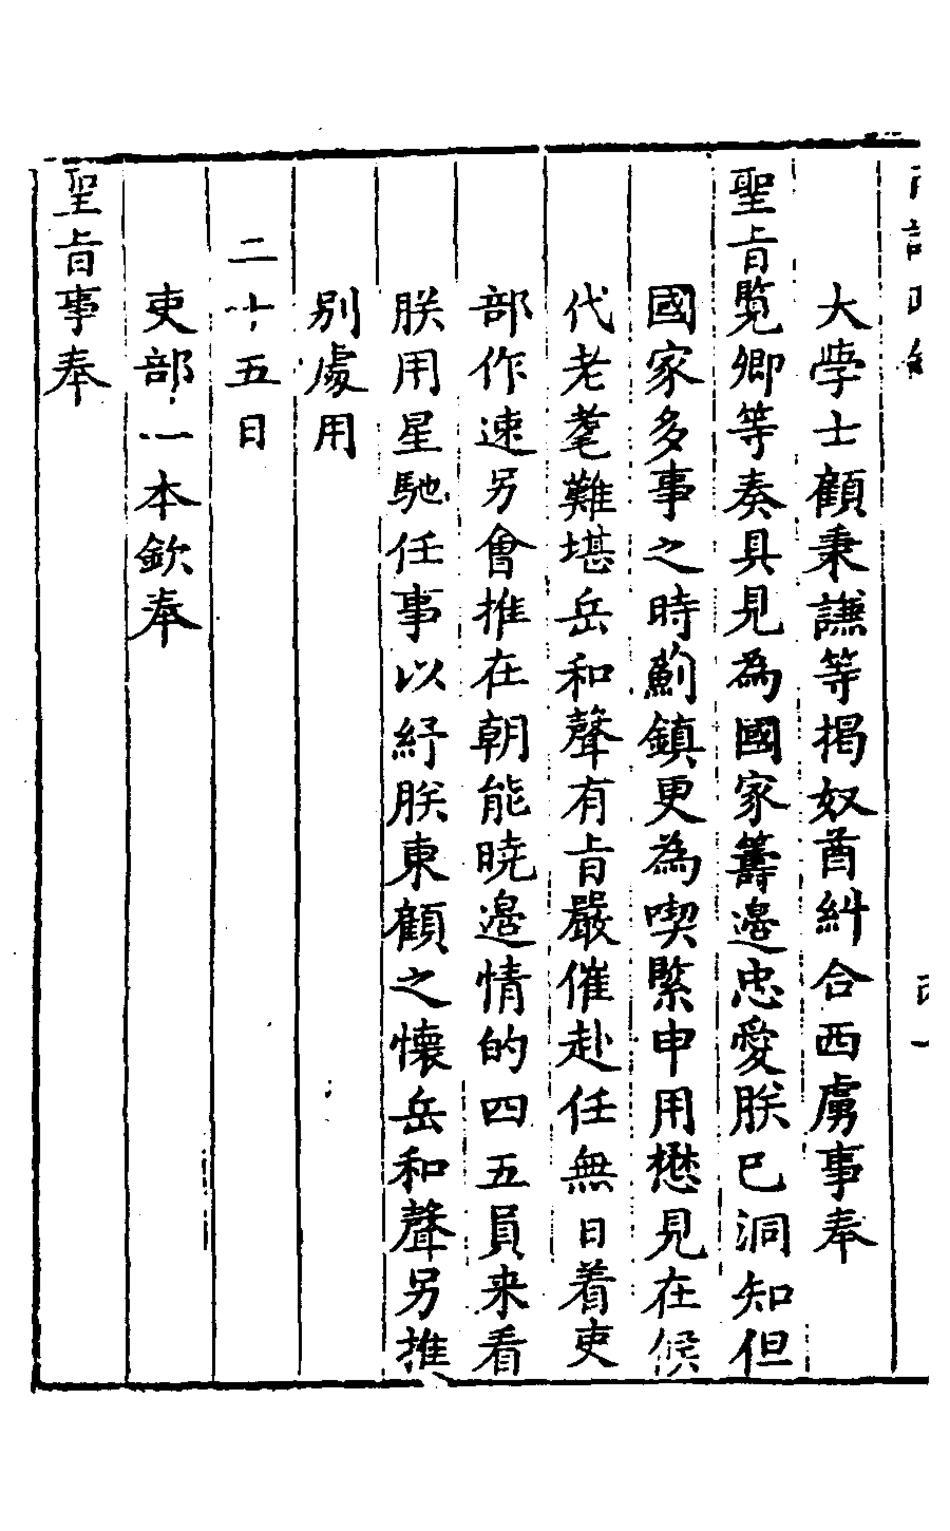 大學士顧秉謙等揭奴酋糾合西虜事奉
聖旨覧卿等奏具見為國家籌邉忠愛朕已洞知但
國家多事之時薊鎮更為喫緊申用懋見在候
代老耄難堪岳和聲有旨嚴催赴任無日着吏
部作速另會推在朝能暁邉情的四五員来看
朕用星馳任事以紓朕東顧之懷岳和聲另推
别處用
二十五日
吏部一本欽奉
聖旨事奉